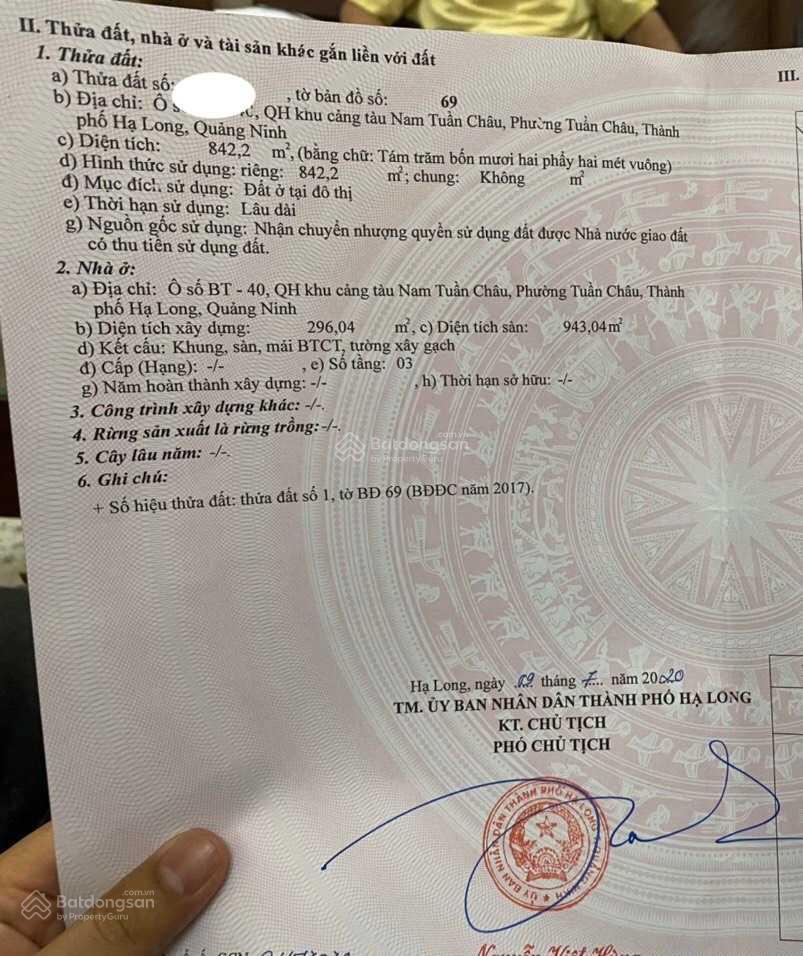 II. Thửa đất, nhà ở và tài sản khác gắn liền với đất
III.
1. Thửa đất:
a) Thửa đất số: , tờ bản đồ số: 69
b) Địa chỉ: Ô QH khu cảng tàu Nam Tuần Châu, Phường Tuần Châu, Thành
phố Hạ Long, Quảng Ninh
c) Diện tích: 842,2 m², (bằng chữ: Tám trăm bốn mươi hai phẩy hai mét vuông)
d) Hình thức sử dụng: riêng: 842,2 m²; chung: Không m²
đ) Mục đích sử dụng: Đất ở tại đô thị
e) Thời hạn sử dụng: Lâu dài
g) Nguồn gốc sử dụng: Nhận chuyển nhượng quyền sử dụng đất được Nhà nước giao đất
có thu tiền sử dụng đất.
2. Nhà ở:
a) Địa chỉ: Ô số BT - 40, QH khu cảng tàu Nam Tuần Châu, Phường Tuần Châu, Thành
phố Hạ Long, Quảng Ninh
b) Diện tích xây dựng: 296,04 m², c) Diện tích sàn: 943,04m²
d) Kết cấu: Khung, sàn, mái BTCT, tường xây gạch
đ) Cấp (Hạng): -/- , e) Số tầng: 03
g) Năm hoàn thành xây dựng: -/- , h) Thời hạn sở hữu: -/-
3. Công trình xây dựng khác: -/-.
4. Rừng sản xuất là rừng trồng: -/-.
5. Cây lâu năm: -/-.
6. Ghi chú:
+ Số hiệu thửa đất: thửa đất số 1, tờ BĐ 69 (BĐĐC năm 2017).
Batdongsan.com.vn
by PropertyGuru
Hạ Long, ngày 09 tháng 7 năm 2020
TM. ỦY BAN NHÂN DÂN THÀNH PHỐ HẠ LONG
KT. CHỦ TỊCH
PHÓ CHỦ TỊCH
ỦY BAN NHÂN DÂN THÀNH PHỐ HẠ LONG
Batdongsan.com.vn
by PropertyGuru